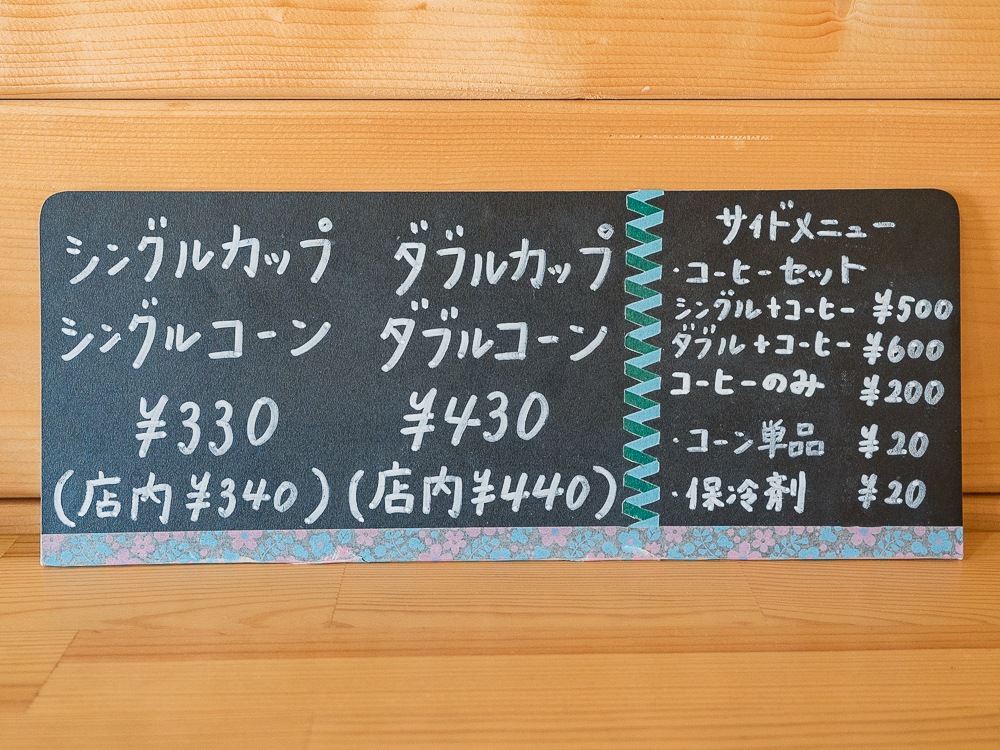 シングルカップ
シングルコーン
¥330
(店内¥340)
ダブルカップ
ダブルコーン
¥430
(店内¥440)
サイドメニュー
・コーヒーセット
シングル+コーヒー ¥500
ダブル+コーヒー ¥600
コーヒーのみ ¥200
・コーン単品 ¥20
・保冷剤 ¥20